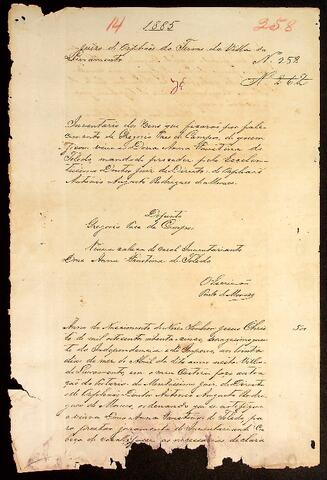 14 1885 258
Juizo de Orphãos do Termo da Villa do
Livramento
N. 258
Nº 262
Inventario dos bens que ficarão por fale-
cimento de Gregorio Paes de Campos, de quem
ficou viuva Dona Anna Faustina de
Toledo, mandado proceder pelo Excelen-
tissimo Doutor Juiz de Direito de Orphãos
Antonio Augusto Rodrigues de Moraes.
Defunto
Gregorio Paes de Campos.
Viuva cabeça de casal Inventariante
Dona Anna Faustina de Toledo
O Escrivão
Porto de Moraes
Anno do Nascimento de Nosso Senhor Jesus Chris-
to de mil oito cento oitenta e cinco,
da Independencia e do Imperio, aos
dias do mez de Abril do dito anno nesta Villa
do Livramento, em o meu Cartorio
do Meretissimo Juiz de Direito
de Orphãos Doutor Antonio Augusto Rodri-
gues de Moraes, ordenando que
a viuva Dona Anna Faustina de Toledo, pa-
ra prestar juramento de Inventariante Ca-
beça de casal, fazer as necessarias declara